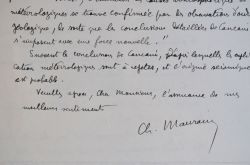 météorologiques se trouve confirmée par les observations d'ordre
géologique, de sorte que la conclusion de Cancani
s'imposent avec une force nouvelle.
Suivant la conclusion de Cancani, d'après laquelle
cation météorologiques sont à rejeter, et l'origine séismique
est probable.
Veuillez agréer, cher Monsieur, l'assurance de mes
meilleurs sentiments
Ch. Maurain